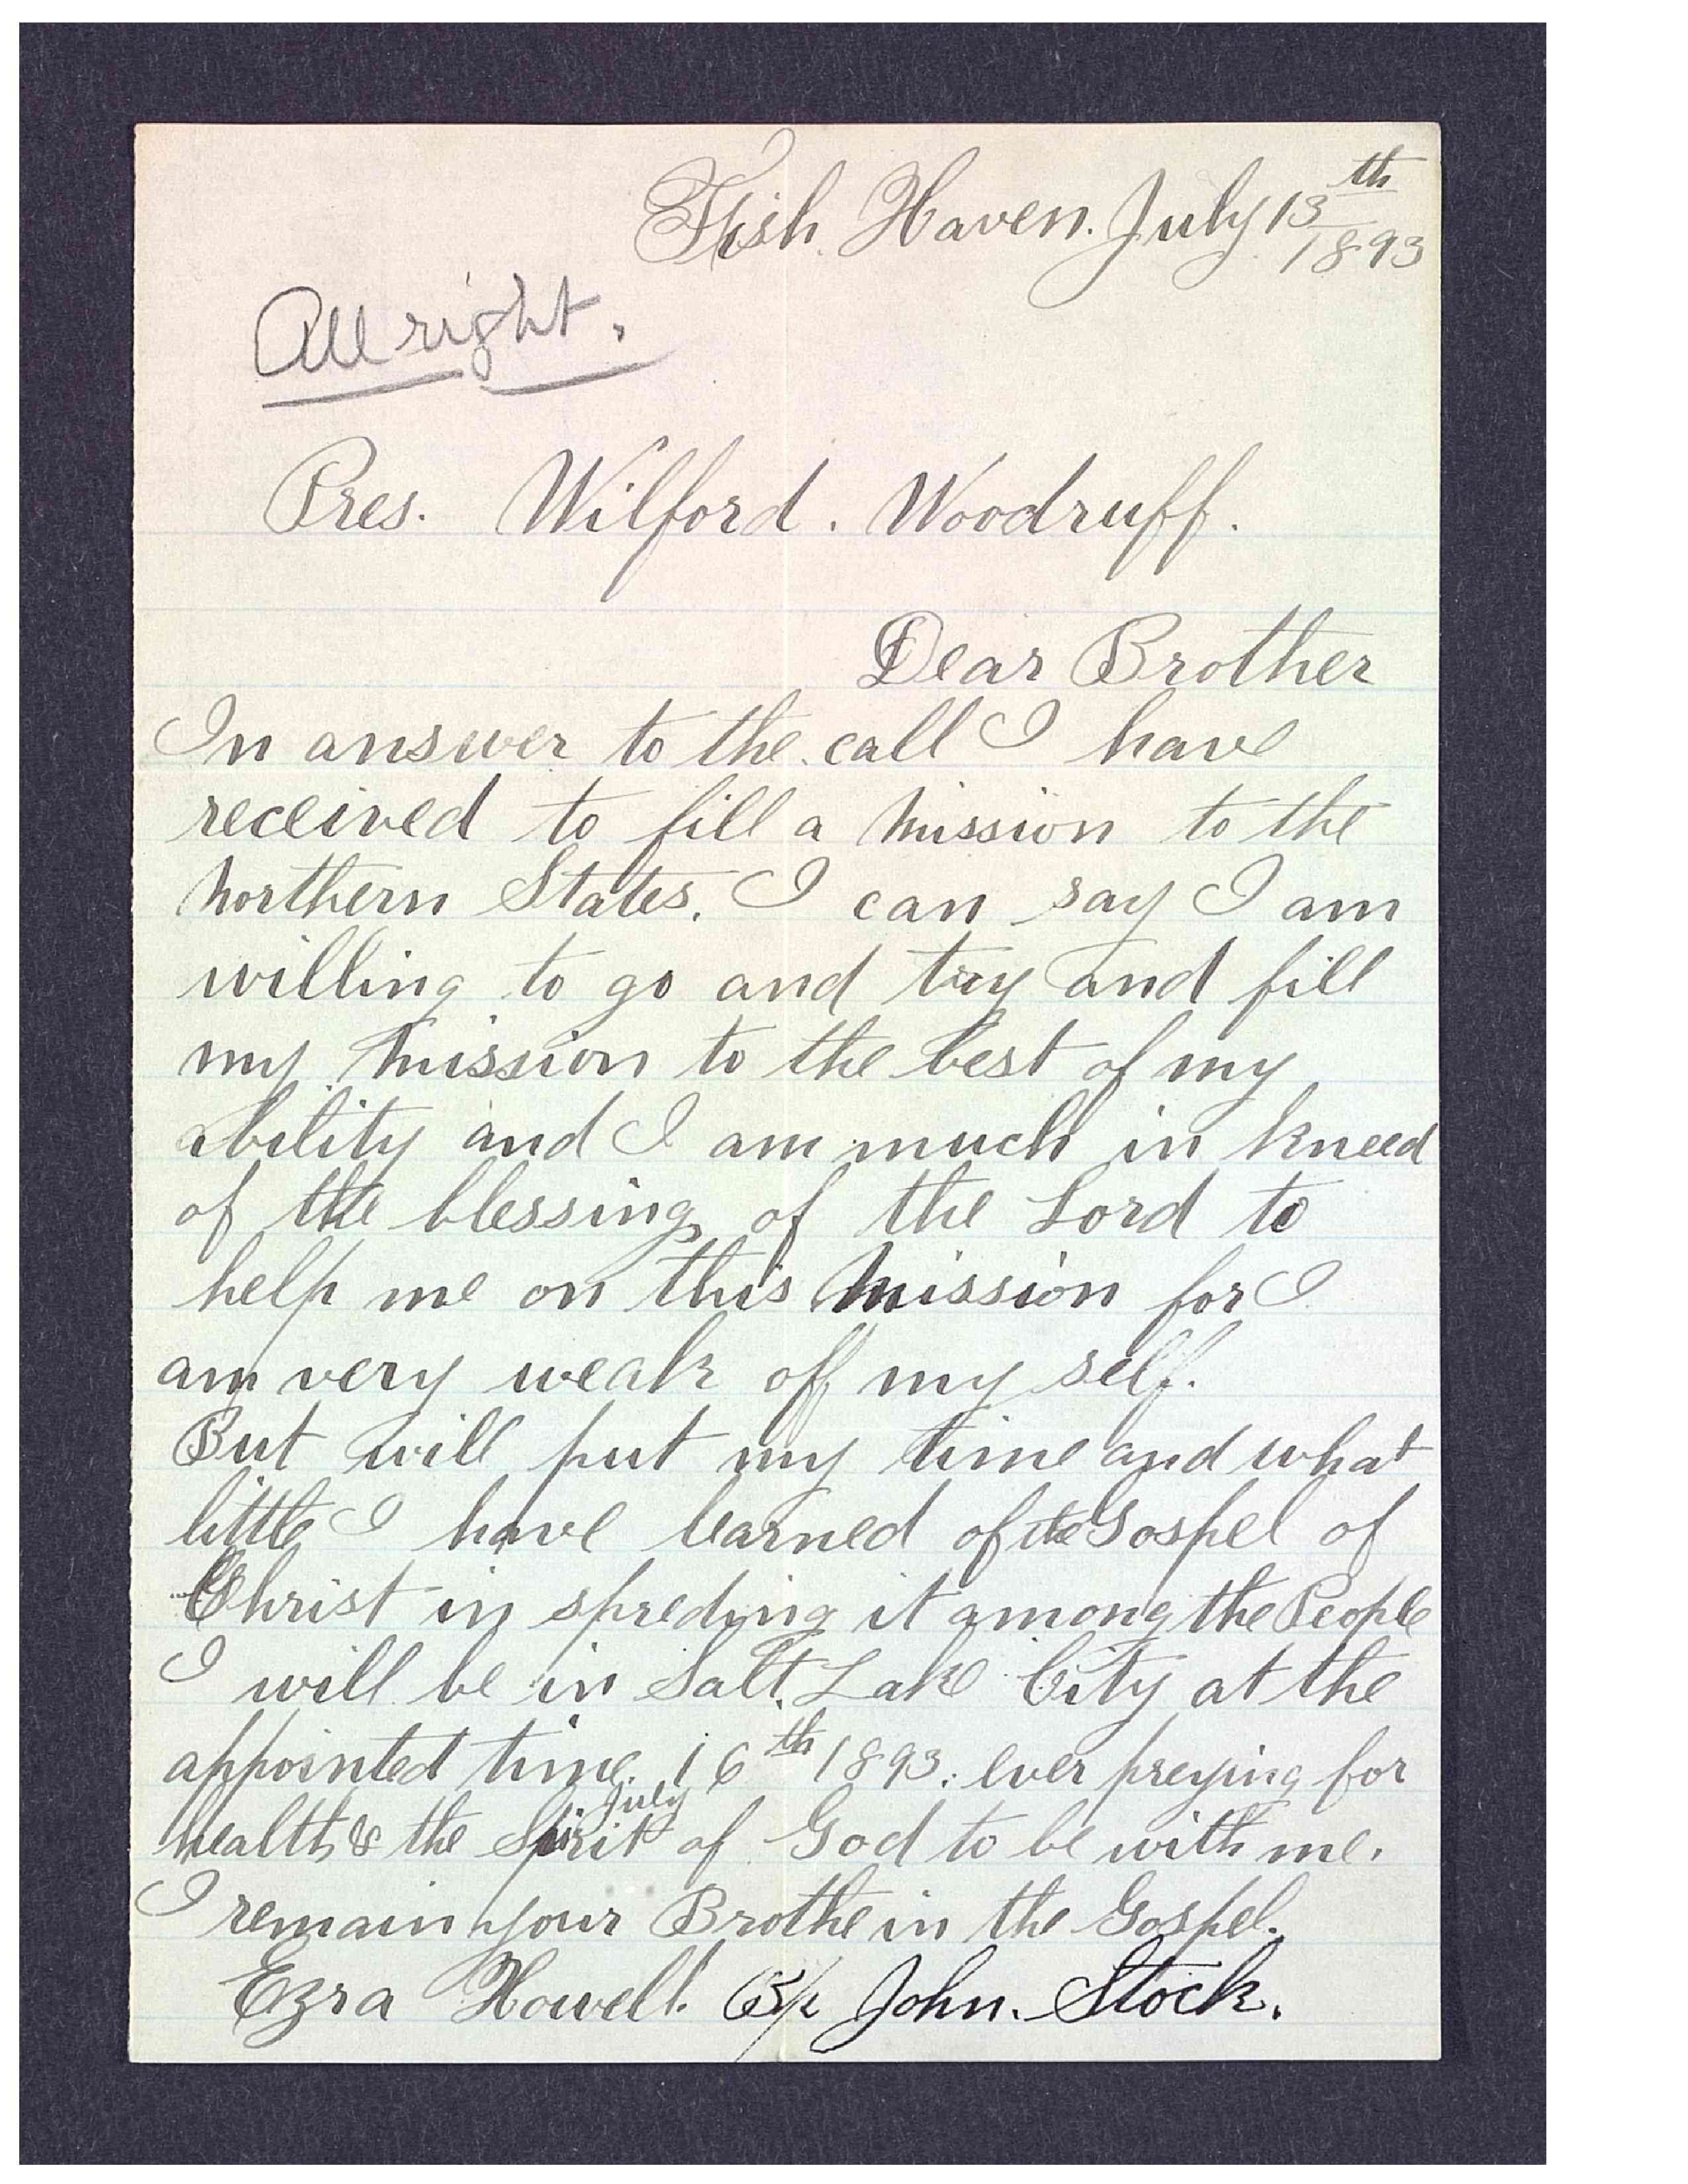 Fish Haven. July 13th
1893
All right.
Pres. Wilford. Woodruff.
Dear Brother
In answer to the call I have
received to fill a Mission to the
Northern States. I can say I am
willing to go and try and fill
my Mission to the best of my
ability and I am much in kneed
of the blessings of the Lord to
help me on this Mission for I
am very weak off my self.
But will put my time and what
little I have learned of the Gospel of
Christ in spreding it among the People
I will be in Salt Lake City at the
appointed time. 16th 1893. ever preying for
July
health & the Spirit of God to be with me.
I remain your Brothe in the Gospel.
Ezra Howell. Bp John. Stock.